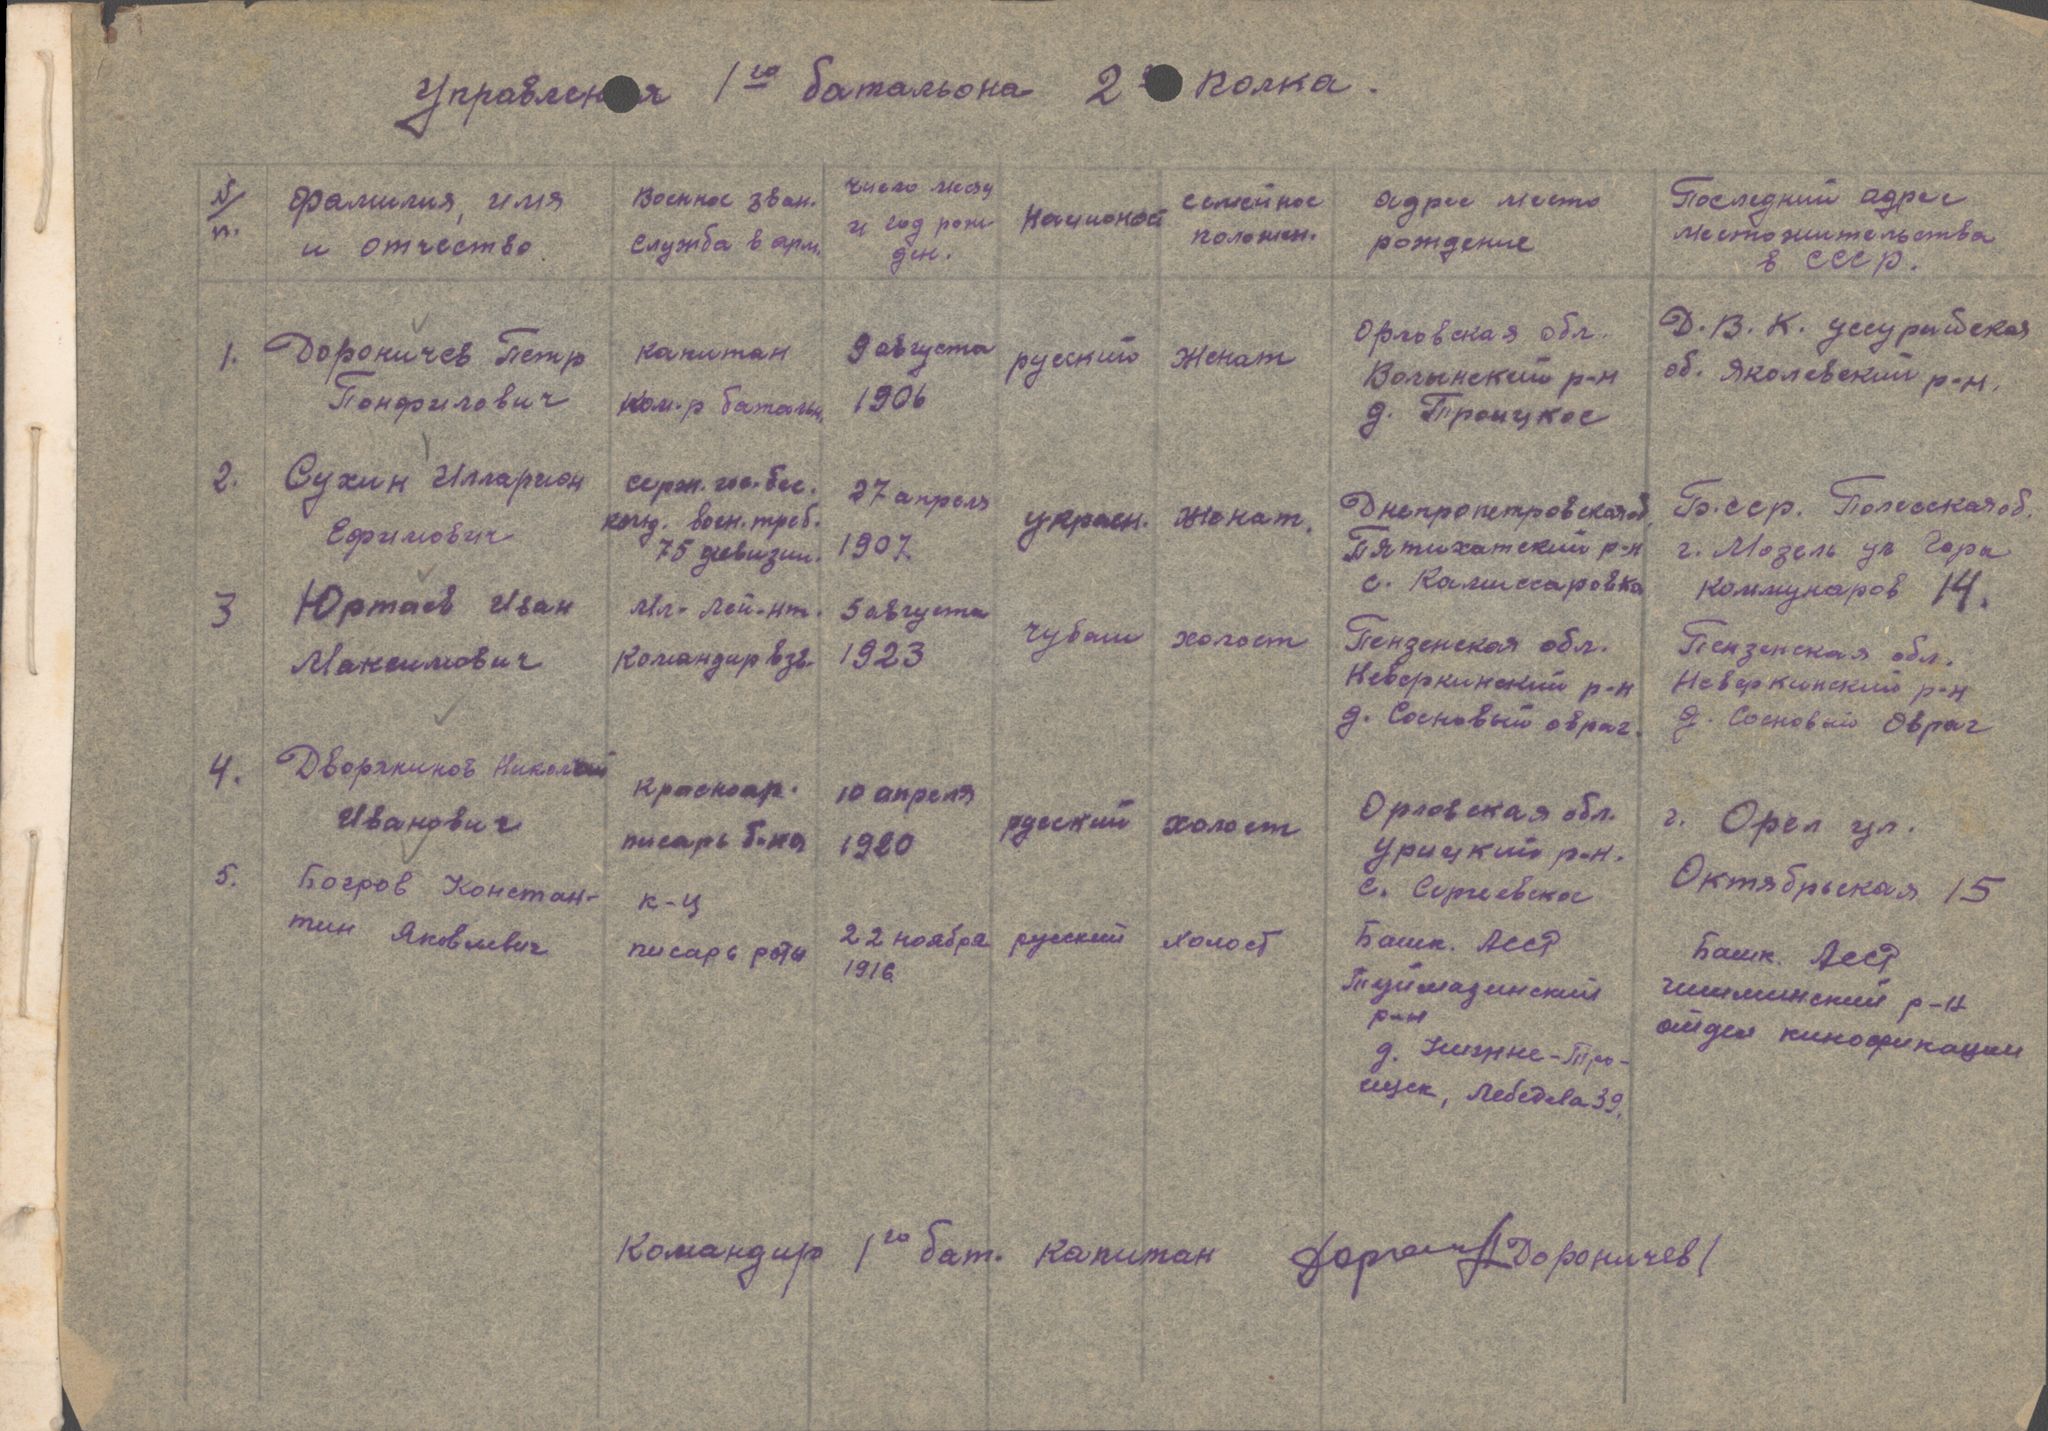 Управления 1го батальона 2го полка.
№/п. Фамилия, имя и отчество
Военное зван. служба в арм.
Число месяц и год рожден.
Национой
Семейное положен.
Адрес место рождение
Последний адрес местожительства в СССР.
1. Дороничев Петр Понфилович
капитан ком-р батальн.
9 августа 1906
русский
женат
Орловская обл.
Волынский р-н
д. Троицкое
Д.В.К. уссурийская
об. Яколевский р-н.
2. Сухин Илларион Ефимович
серж. гос. без.
конд. воен. треб.
75 дивизии.
27 апреля 1907
украин.
женат.
Днепропетровская об.
Пятихатский р-н
с. Камиссаровка
Б.сср. Полесская об.
г. Мозель ул Гора
коммунаров 14.
3 Юртаев Иван Максимович
Мл-лей-нт.
Командир взв.
5 августа 1923
чуваш
холост
Пензенская обл.
Неверкинский р-н
д. Сосновый овраг.
Пензенская обл.
Неверкинский р-н
д. Сосновый Овраг
4. Дворянинов Николай Иванович
Красноар.
писарь б-на
10 апреля 1920
русский
холост
Орловская обл.
Урицкий р-н.
с. Сергеевское
г. Орел ул.
Октябрьская 15
5. Богров Констан-
тин Яковлевич
к-ц
писарь роты
22 ноября
1916
русский
холост
Башк. АССР
Туймазинский
р-н
д. Нижне-Тро-
ицск, Лебедева 39.
Башк. АССР
чишминский р-н
отдел кинофикации
Командир 1го бат. капитан /Дороничев/